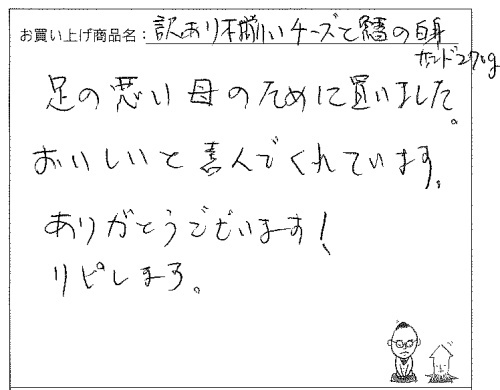 お買い上げ商品名：訳あり不揃いチーズと鱈の白身
サンド270g
足の悪い母のために買いました。
おいしいと喜んでくれています。
ありがとうございます！
リピします。